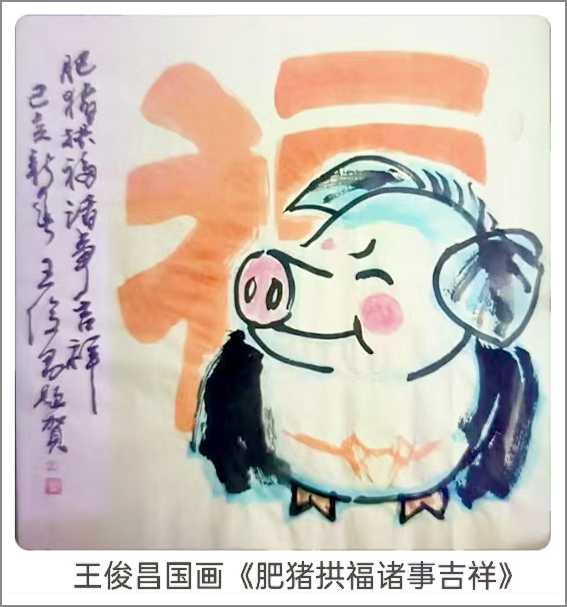 福
肥猪拱福诸事吉祥
己亥新春王俊昌题賀
王俊昌国画《肥猪拱福诸事吉祥》